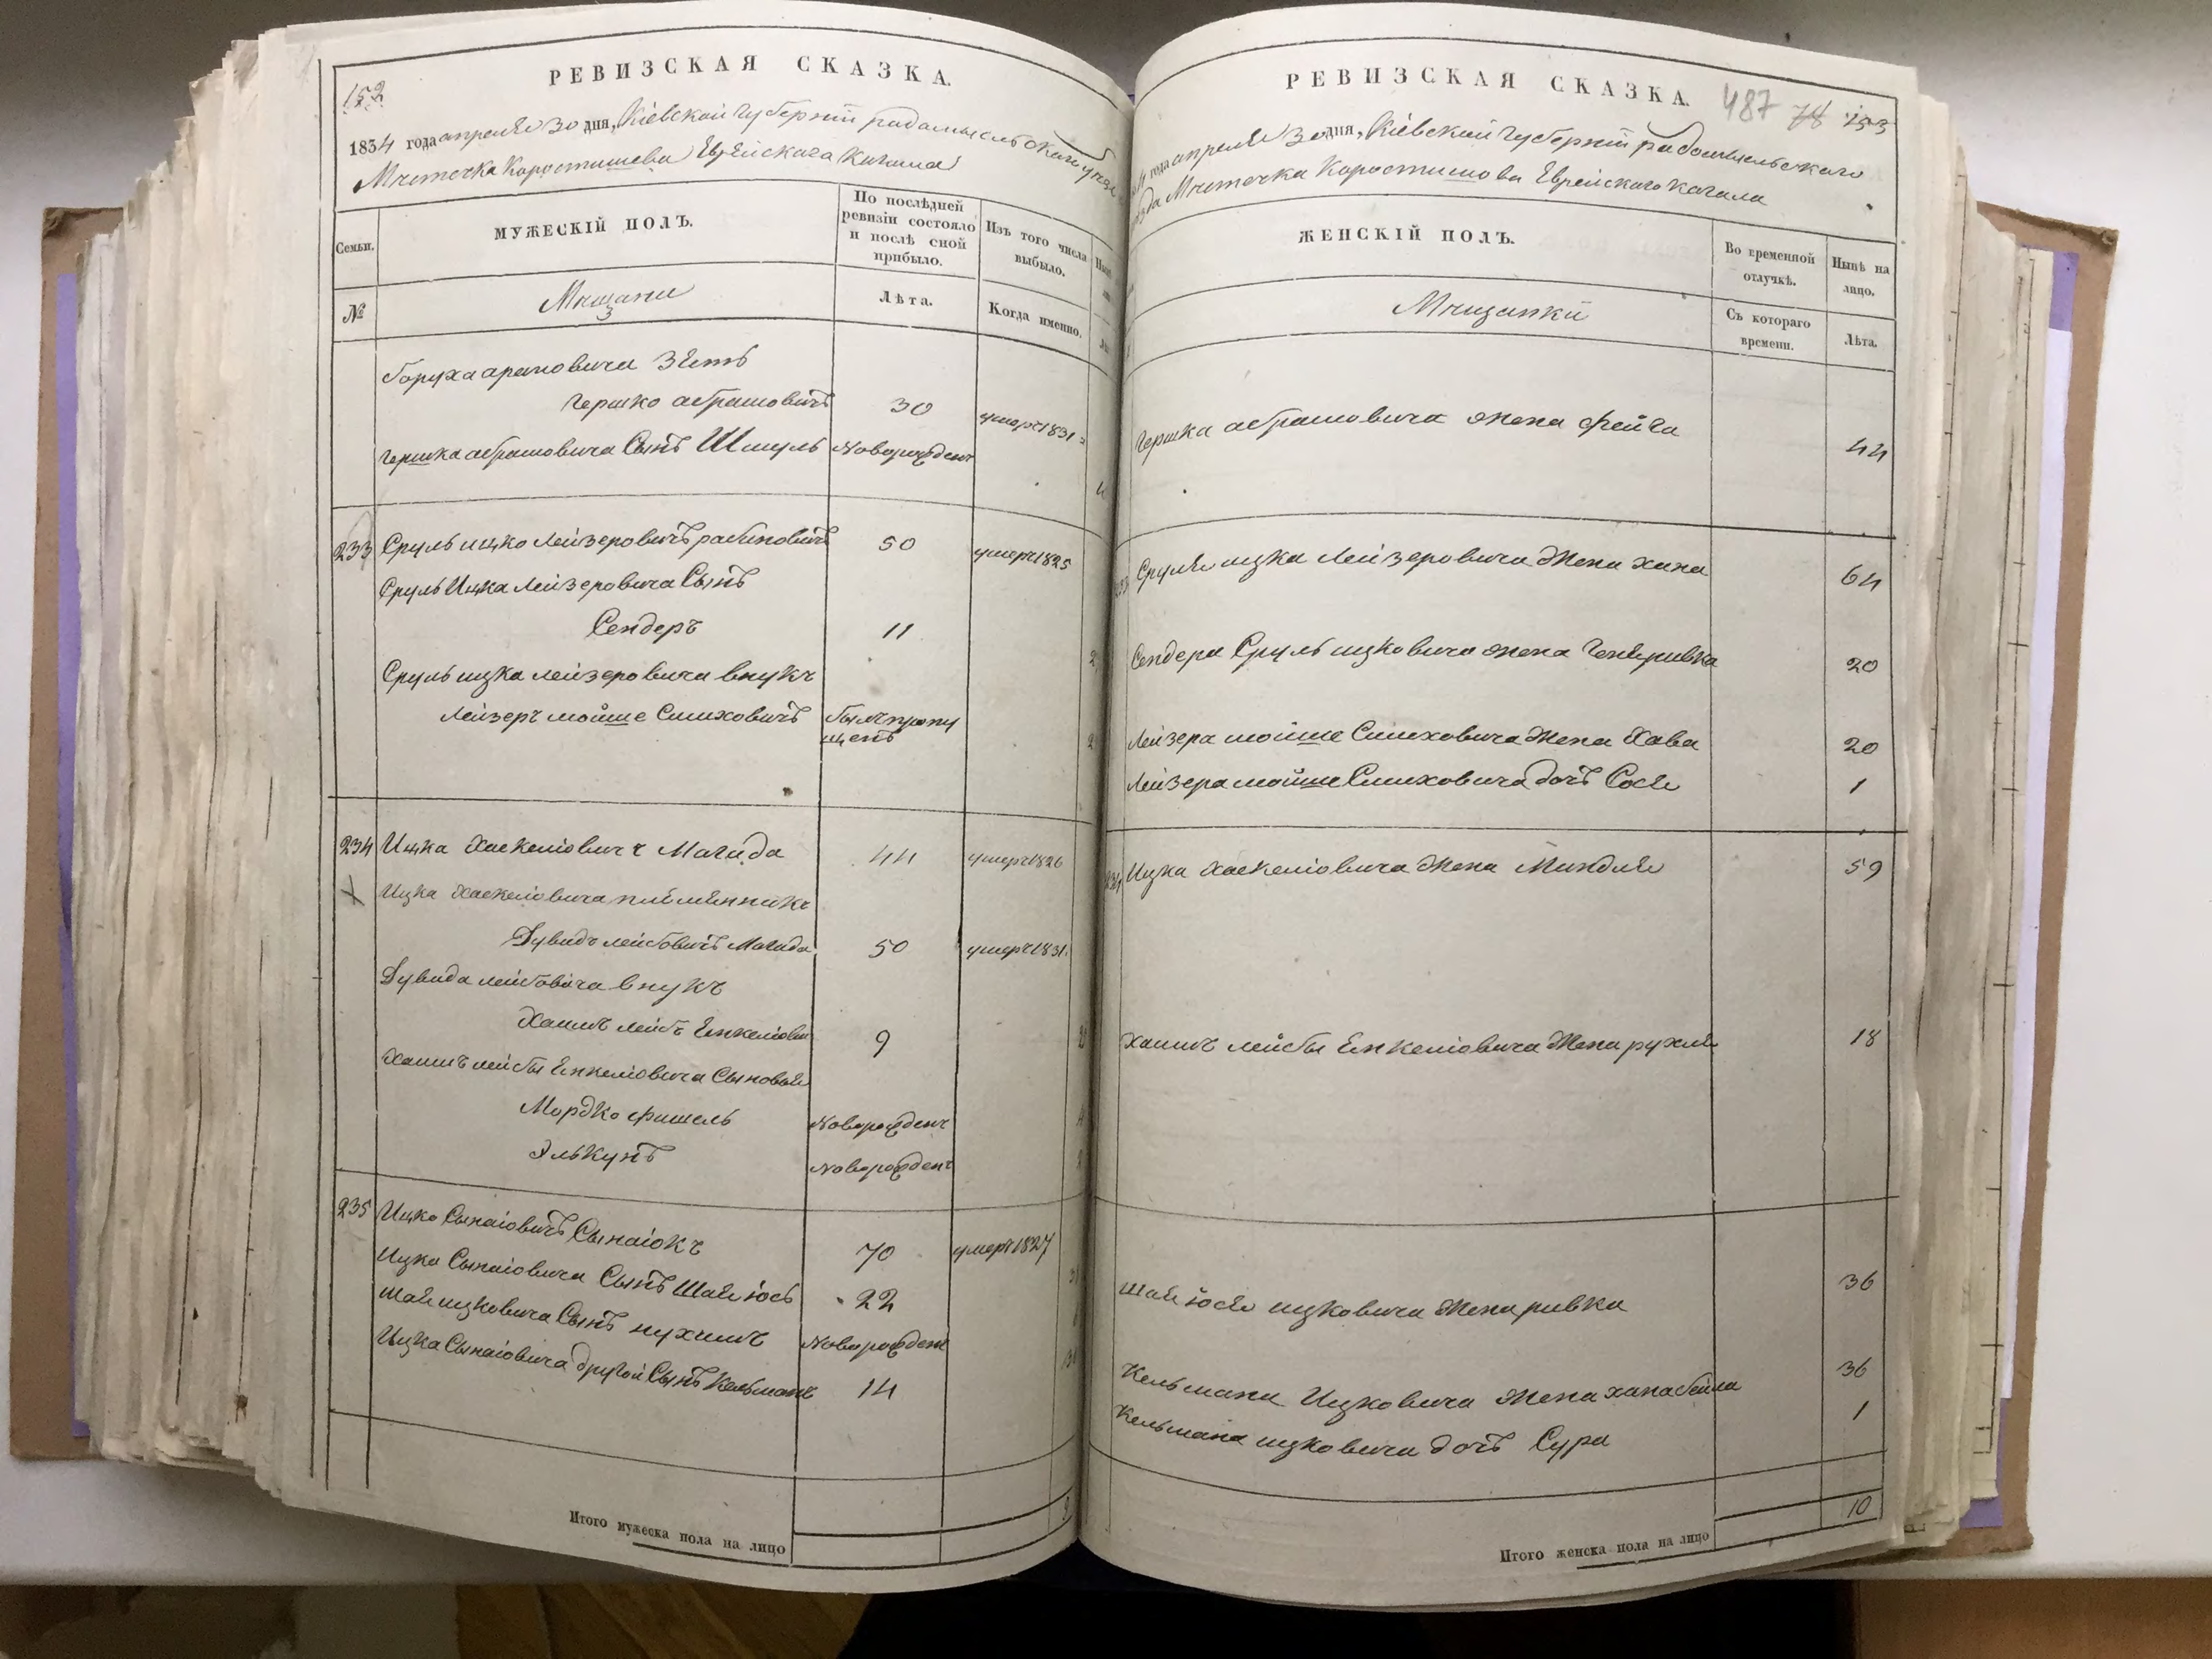 152
РЕВИЗСКАЯ СКАЗКА.
1834 года апреля 30 дня, Кіевской Губерніи радомысльскаго уезда
Мѣстечка Коростишева Еврейскаго Кагала
Семьи.
МУЖЕСКІЙ ПОЛЪ.
По послѣдней ревизіи состояло и послѣ оной прибыло.
Изъ того числа выбыло.
№
Мѣщани
Лѣта.
Когда именно.
боруха ароновича Зять
Гершко абрамовичъ 30 умеръ 1831
Гершка абрамовича Сынъ Шмуль Новорожденъ
233 Сруль ицко Лейзеровичъ рабиновичъ 50 умеръ 1825
Сруль Ицка Лейзеровича Сынъ
Сендеръ 11
Сруль ицка лейзеровича внукъ
Лейзеръ мойше Симховичъ былъ пропу
щенъ
234 Ицка Хаскеліовичъ Магида 44 умеръ 1826
Ицка Хаскеліовича племянникъ
Дувидъ лейбовичъ Магида 50 умеръ 1831
Дувида лейбовича внукъ
Хаимъ лейбъ Енкеліови 9
Хаимъ лейбы Енкеліовича Сыновья
Мордко фишель Новорожденъ
Элькунъ Новорожденъ
235 Ицко Сынаіовичъ Сынаіокъ 70 умеръ 1827
Ицка Сынаіовича Сынъ Шая юсь 22
шая ицковича Сынъ нухимъ Новорожден
Ицка Сынаіовича другой Сынъ Кельманъ 14
Итого мужеска пола на лицо
РЕВИЗСКАЯ СКАЗКА.
487 78 153
года апреля 30 дня, Кіевской Губерніи радомысльскаго
езда Мѣстечка Коростишова Еврейскаго кагала
ЖЕНСКІЙ ПОЛЪ.
Во временной отлучкѣ.
Нынѣ на лицо.
Мѣщанки
Съ котораго времени.
Лѣта.
Гершка абрамовича жена фейга 44
Сруля ицка Лейзеровича Жена хана 64
Сендера Сруль ицковича жена Геняривка 20
Лейзера мойше Симховича Жена Хава 20
Лейзера мойше Симховича дочъ Сося 1
234 Ицка Хаскеліовича Жена Миндля 59
Хаимъ лейбы Енкеліовича Жена рухля 18
шая юся ицковича Жена ривка 36
Кельмана Ицковича Жена хана бейла 36
Кельмана ицковича дочъ Сура 1
10
Итого женска пола на лицо